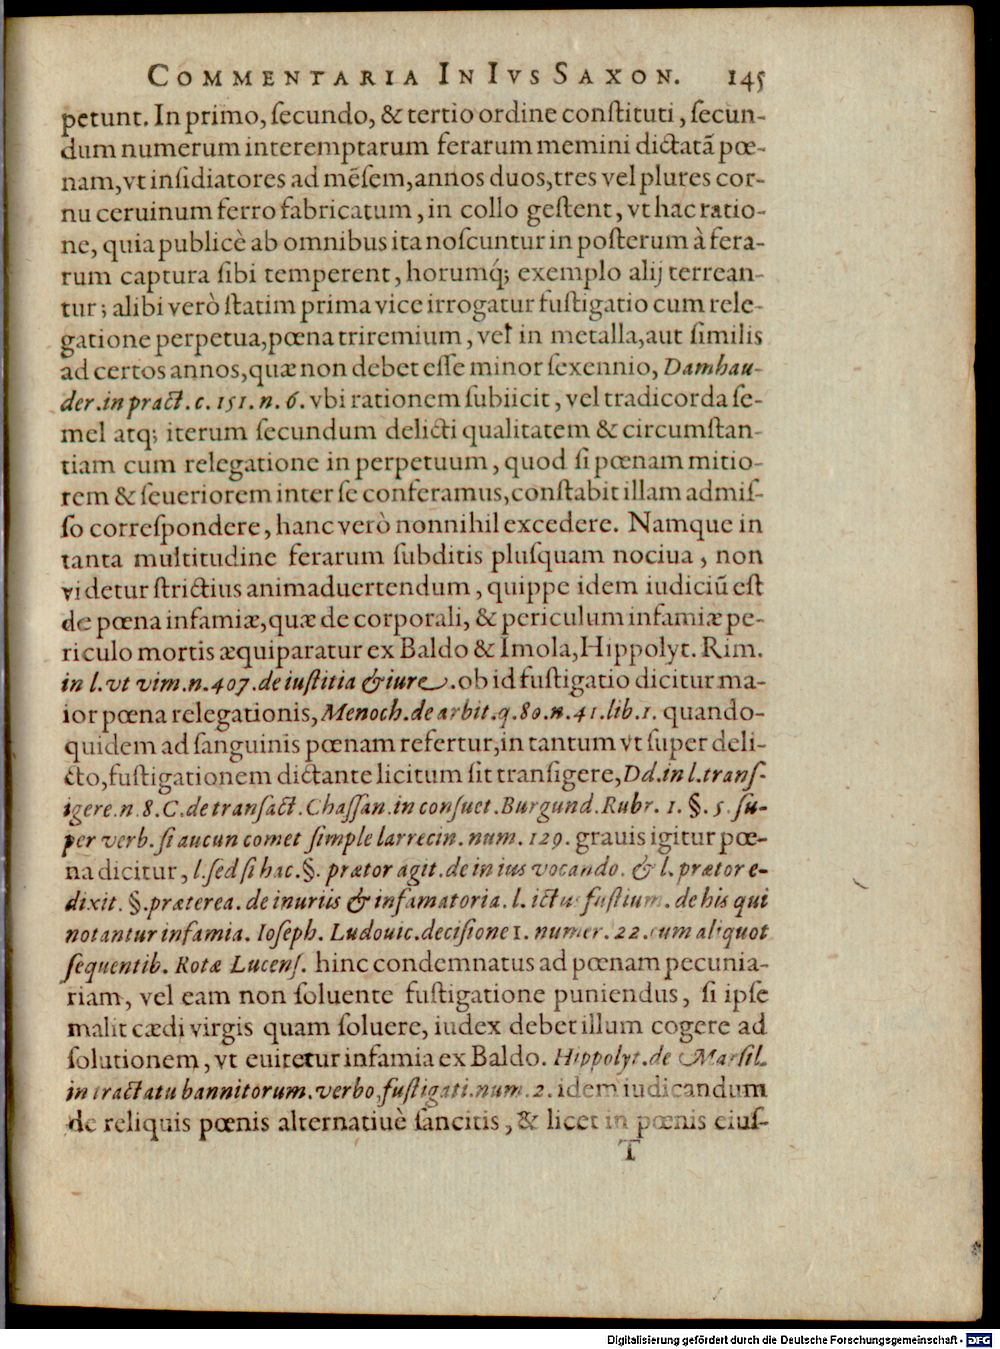 COMMENTARIA IN IVS SAXON. 145
petunt. In primo, ſecundo, & tertio ordine conſtituti, ſecun-
dum numerum interemptarum ferarum memini dictatã pœ-
nam, vt inſidiatores ad mẽſem, annos duos, tres vel plures cor-
nu ceruinum ferro fabricatum, in collo geſtent, vt hac ratio-
ne, quia publicè ab omnibus ita noſcuntur in poſterum à fera-
rum captura ſibi temperent, horumq́; exemplo alij terrean-
tur; alibi verò ſtatim prima vice irrogatur fuſtigatio cum rele-
gatione perpetua, pœna triremium, vel in metalla, aut ſimilis
ad certos annos, quæ non debet eſſe minor ſexennio, Damhau-
der. in pract. c. 151. n. 6. vbi rationem ſubiicit, vel tradicorda ſe-
mel atq; iterum ſecundum delicti qualitatem & circumſtan-
tiam cum relegatione in perpetuum, quod ſi pœnam mitio-
rem & ſeueriorem inter ſe conferamus, conſtabit illam admiſ-
ſo correſpondere, hanc verò nonnihil excedere. Namque in
tanta multitudine ferarum ſubditis pluſquam nociua, non
videtur ſtrictius animaduertendum, quippe idem iudiciũ eſt
de pœna infamiæ, quæ de corporali, & periculum infamiæ pe-
riculo mortis æquiparatur ex Baldo & Imola, Hippolyt. Rim.
in l. vt vim. n. 407. de iuſtitia & iure. ob id fuſtigatio dicitur ma-
ior pœna relegationis, Menoch. de arbit. q. 80. n. 41. lib. 1. quando-
quidem ad ſanguinis pœnam refertur, in tantum vt ſuper deli-
cto, fuſtigationem dictante licitum ſit tranſigere, Dd. in l. tranſ-
igere. n. 8. C. de tranſact. Chaſſan. in conſuet. Burgund. Rubr. 1. §. 5. ſu-
per verb. ſi aucun comet ſimple larrecin. num. 129. grauis igitur pœ-
na dicitur, l. ſed ſi hac. §. prætor agit. de in ius vocando. & l. prætor e-
dixit. §. præterea. de inuriis & infamatoria. l. ictus fuſtium. de his qui
notantur infamia. Ioſeph. Ludouic. deciſione 1. numer. 22. cum aliquot
ſequentib. Rotæ Lucenſ. hinc condemnatus ad pœnam pecunia-
riam, vel eam non ſoluente fuſtigatione puniendus, ſi ipſe
malit cædi virgis quam ſoluere, iudex debet illum cogere ad
ſolutionem, vt euitetur infamia ex Baldo. Hippolyt. de Marſil.
in tractatu bannitorum. verbo, fuſtigati. num. 2. idem iudicandum
de reliquis pœnis alternatiuè ſancitis, & licet in pœnis eiuſ-
T
Digitalisierung gefördert durch die Deutsche Forschungsgemeinschaft - DFG